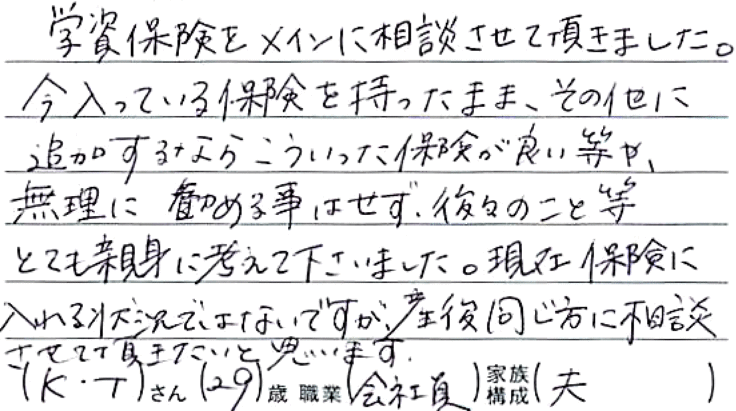 学資保険をメインに相談させて頂きました。
今入っている保険を持ったまま、その他に
追加するならこういった保険が良い等や、
無理に勧める事はせず、後々のこと等
とても親身に考えて下さいました。現在保険に
入れる状況ではないですが、産後同じ方に相談
させて頂きたいと思います。
(K・T)さん(29)歳 職業(会社員)家族構成(夫)